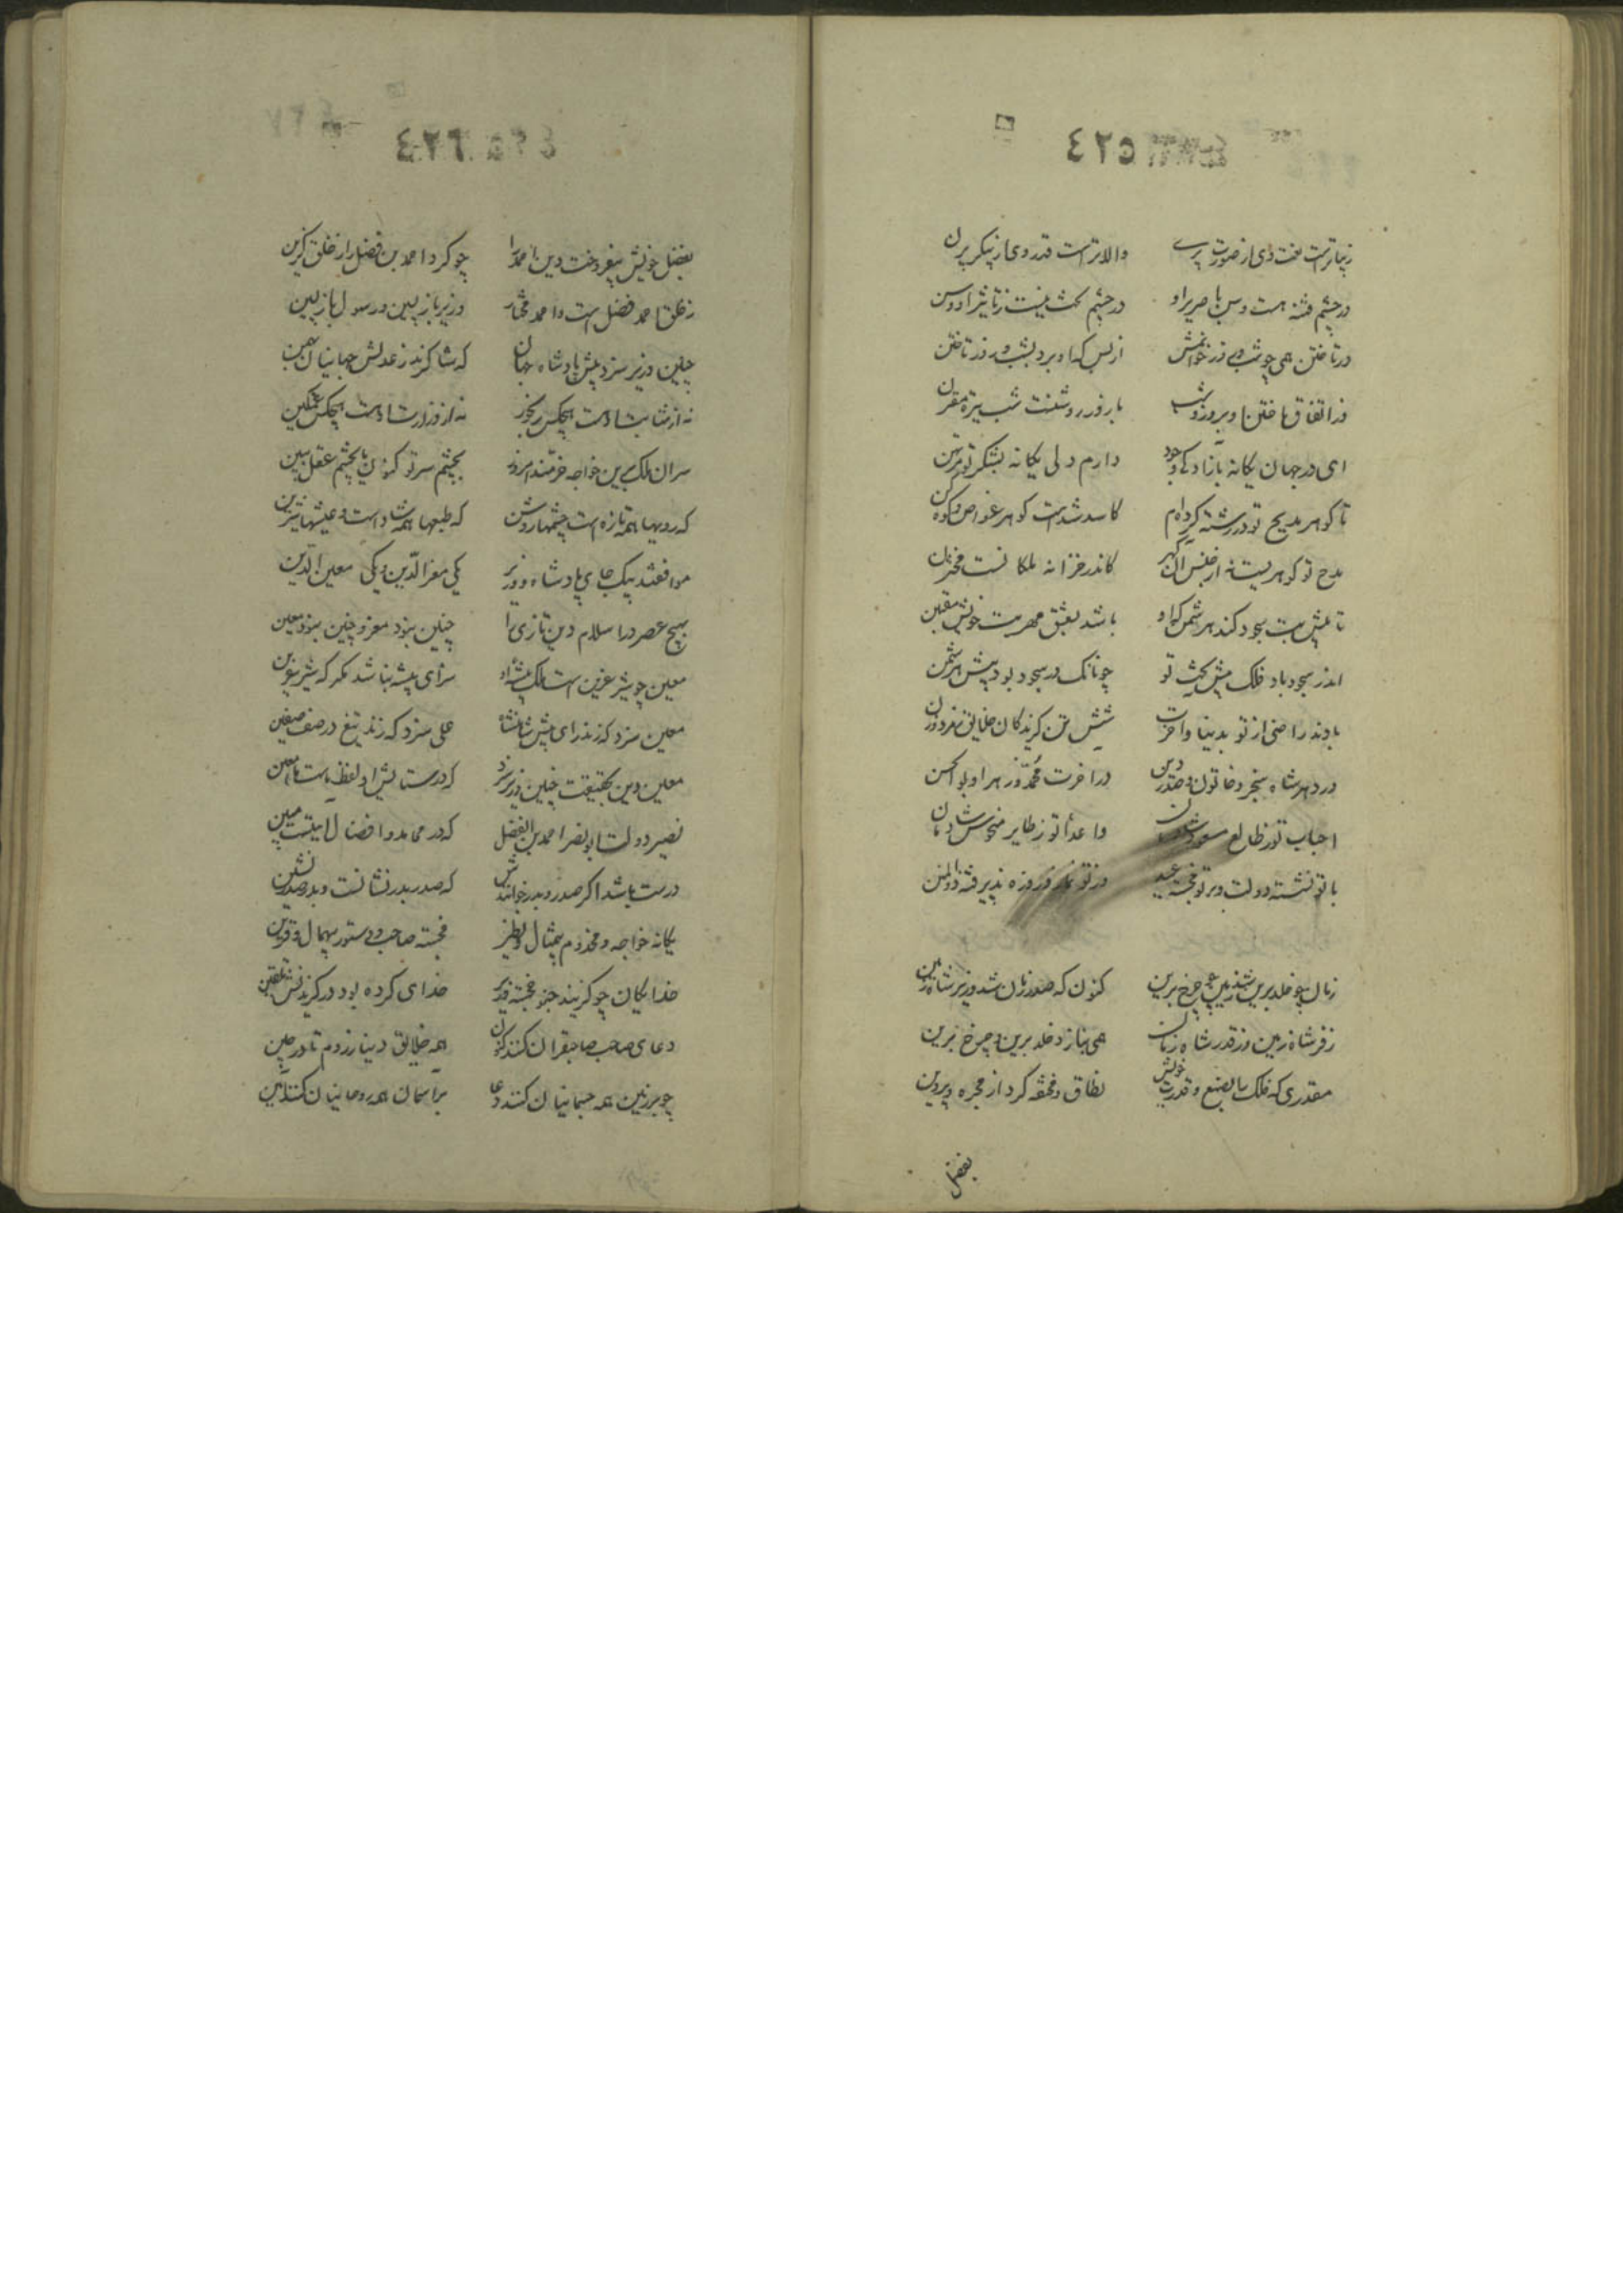 ٤٢٥
زیباترست نعت وی از صورت پری والاترست قدر وی از پیکر پرن
در چشم فتنه هست وسن با صریر او در چشم بخت نیست ز تاثیر او وسن
در تاختن همی چو شب و روز خوانمش از بس که او برد بشب و روز تاختن
وز اتفاق تاختن او بروز و شب با روز روشنست شب تیره مقترن
ای در جهان یگانه بآزادگی وجود دارم دلی یگانه بشکر تو مرتهن
تا گوهر مدیح تو در رشته کرده‌ام کاسد شدست گوهر غواص و کوه کن
مدح تو گوهریست نه از جنس آن گهر کاندر خزانه ملکانست مختزن
تا پیش بت سجود کند هر شمن که او باشد بعشق مهر بت خویش مفتتن
اندر سجود باد فلک پیش بخت تو چونانک در سجود بود پیش بت شمن
بادند راضی از تو بدنیا و آخرت شش تن گزیدگان خلایق ز مرد و زن
در دهر شاه سنجر و خاتون و صدر دین در آخرت محمد و زهرا و بوالحسن
احباب تو ز طالع مسعود شادمان و اعدا تو ز طایر منحوس
با تو نشسته دولت و بر تو خجسته عید وز تو نماز و روزه پذیرفته ذوالمنن
زمان چو خلد برین شد زمین چو چرخ برین کنون که صدر زمان شد وزیر شاه زمین
ز فر شاه زمین وز قدر شاه زمان همی بنازد خلد برین و چرخ برین
مقدری که فلک را بصنع و قدرت خویش نطاق و مخنقه کرد از مجره و پروین
بفضل
٤٢٦
بفضل خویش بیفروخت دین احمد را چو کرد احمد بن فضل را ز خلق گزین
ز خلق احمد فضل است و احمد مختار وزیر باز پسین و رسول باز پسین
چنین وزیر سزد پیش پادشاه جهان که شاکرند ز عدلش جهانیان همین
نه از شاهست هیچکس رنجور نه از وزارت شادست هیچکس غمگین
سران ملک بدین خواجه خرمند امروز بچشم سر تو کنون یا بچشم عقل ببین
که رویها همه تازه است و چشمها روشن که طبعها همه شاد است و عیشها شیرین
موافقند بیک جای پادشاه و وزیر یکی معز الدین و یکی معین الدین
بهیچ عصر در اسلام دین تازی را چنین نبود معز و چنین نبود معین
معین چو شیر عرین است و ملک بیشه او سزای بیشه نباشد مگر که شیر عرین
معین سزد که زند رای پیش شاهنشاه علی سزد که زند تیغ در صف صفین
معین دین بحقیقت چنین وزیر سزد که در ستایش او لفظ ماست معین
نصیر دولت ابونصر احمد بن الفضل که در محامد و افضال آیتیست مبین
درست باشد اگر صدر و بدر خوانندش که صدر بدر نشانست و بدر صدرنشین
یگانه خواجه و مخدوم بی‌مثال و نظیر خجسته صاحب و دستور بیهمال و قرین
خدایگان چو گزیند چنو خجسته وزیر خدای کرده بود در گزیدنش تلقین
دعای صاحب صاحبقران کنند کنون همه خلایق دنیا ز روم تا در چین
چو بر زمین همه جسمانیان کنند دعا بر آسمان همه روحانیان کنند آمین